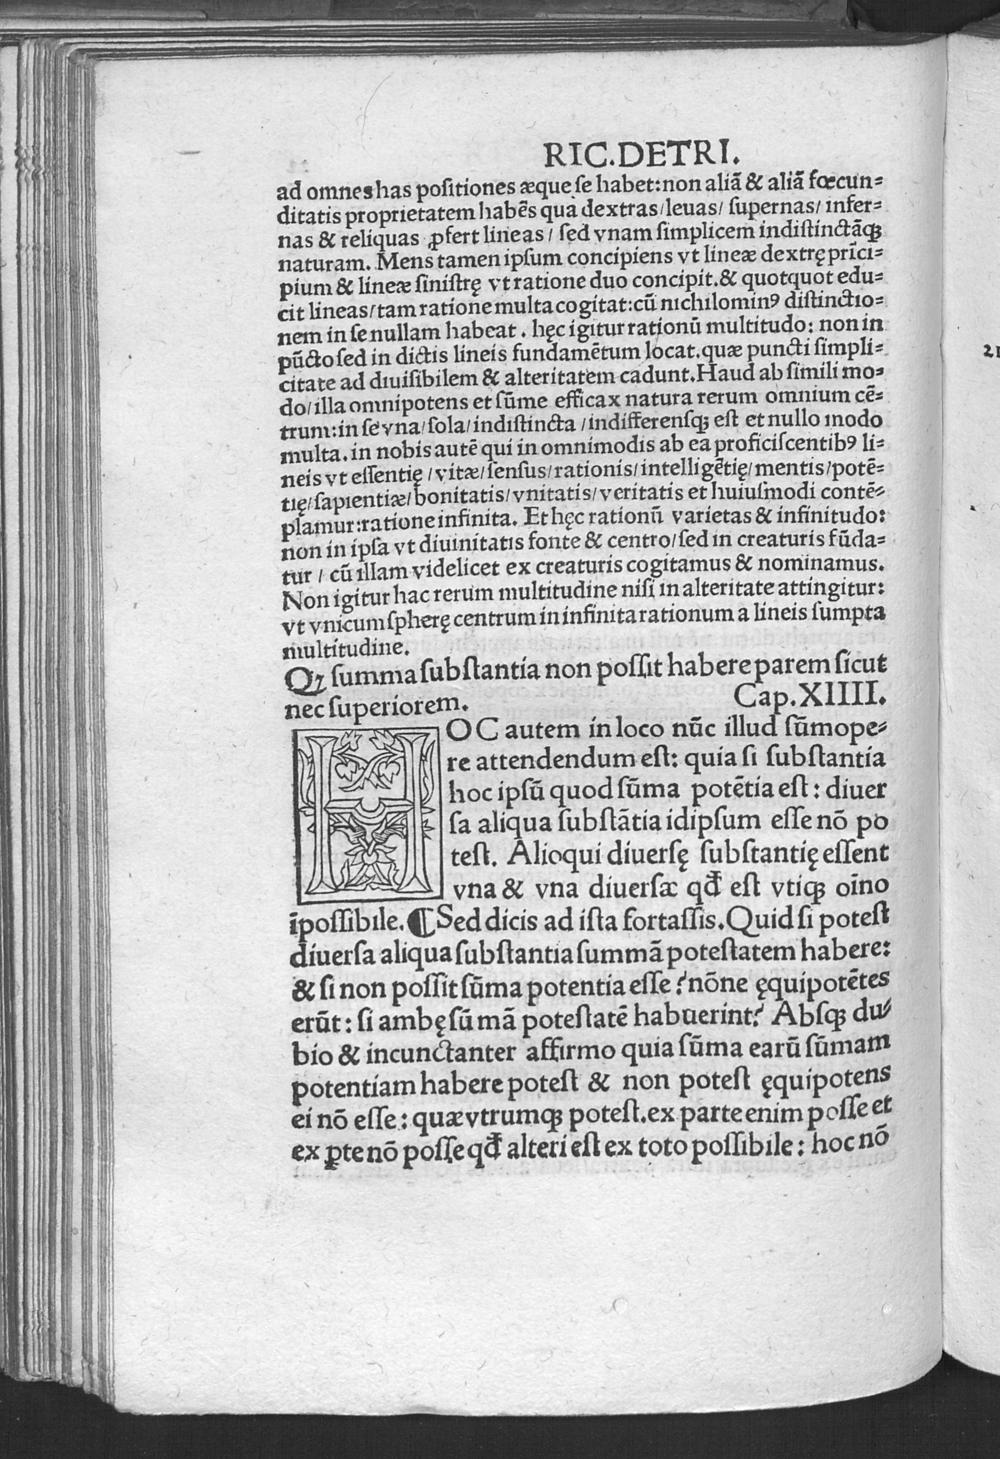 RIC.DETRI.
ad omnes has positiones æque se habet:non aliā & aliā fœcun=
ditatis proprietatem habēs qua dextras/leuas/ supernas/ infer=
nas & reliquas ꝓfert lineas/ sed vnam simplicem indistinctāqꝫ
naturam. Mens tamen ipsum concipiens vt lineæ dextrę prīci=
pium & lineæ sinistrę vt ratione duo concipit.& quotquot edu=
cit lineas/tam ratione multa cogitat:cū nichilominꝰ distinctio=
nem in se nullam habeat. hęc igitur rationū multitudo: non in
pūcto sed in dictis lineis fundamētum locat.quæ puncti simpli=
citate ad diuisibilem & alteritatem cadunt.Haud absimili mo=
do/illa omnipotens et sūme efficax natura rerum omnium cē=
trum:in se vna/sola/indistincta/indifferensqꝫ est et nullo modo
multa.in nobis autē qui in omnimodis ab ea proficiscentibꝰ li=
neis vt essentię/vitæ/sensus/rationis/intelligētię/mentis/potē=
tię/sapientiæ/bonitatis/vnitatis/veritatis et huiusmodi contē=
plamur:ratione infinita. Et hęc rationū varietas & infinitudo:
non in ipsa vt diuinitatis fonte & centro/sed in creaturis fūda=
tur/ cū illam videlicet ex creaturis cogitamus & nominamus.
Non igitur hac rerum multitudine nisi in alteritate attingitur:
vt vnicum spherę centrum in infinita rationum a lineis sumpta
multitudine.
Qꝫ summa substantia non possit habere parem sicut
nec superiorem. Cap.XIIII.
HOC autem in loco nūc illud sūmope=
re attendendum est: quia si substantia
hoc ipsū quod sūma potētia est: diuer
sa aliqua substātia idipsum esse nō po
test. Alioqui diuersę substantię essent
vna & vna diuersæ qđ est vtiqꝫ oīno
īpossibile.¶Sed dicis ad ista fortassis.Quid si potest
diuersa aliqua substantia summā potestatem habere:
& si non possit sūma potentia esse?nōne ęquipotētes
erūt: si ambę sūmā potestatē habuerint? Absqꝫ du=
bio & incunctanter affirmo quia sūma earū sūmam
potentiam habere potest & non potest ęquipotens
ei nō esse: quæ vtrumqꝫ potest.ex parte enim posse et
ex ꝑte nō posse qđ alteri est ex toto possibile: hoc nō
21